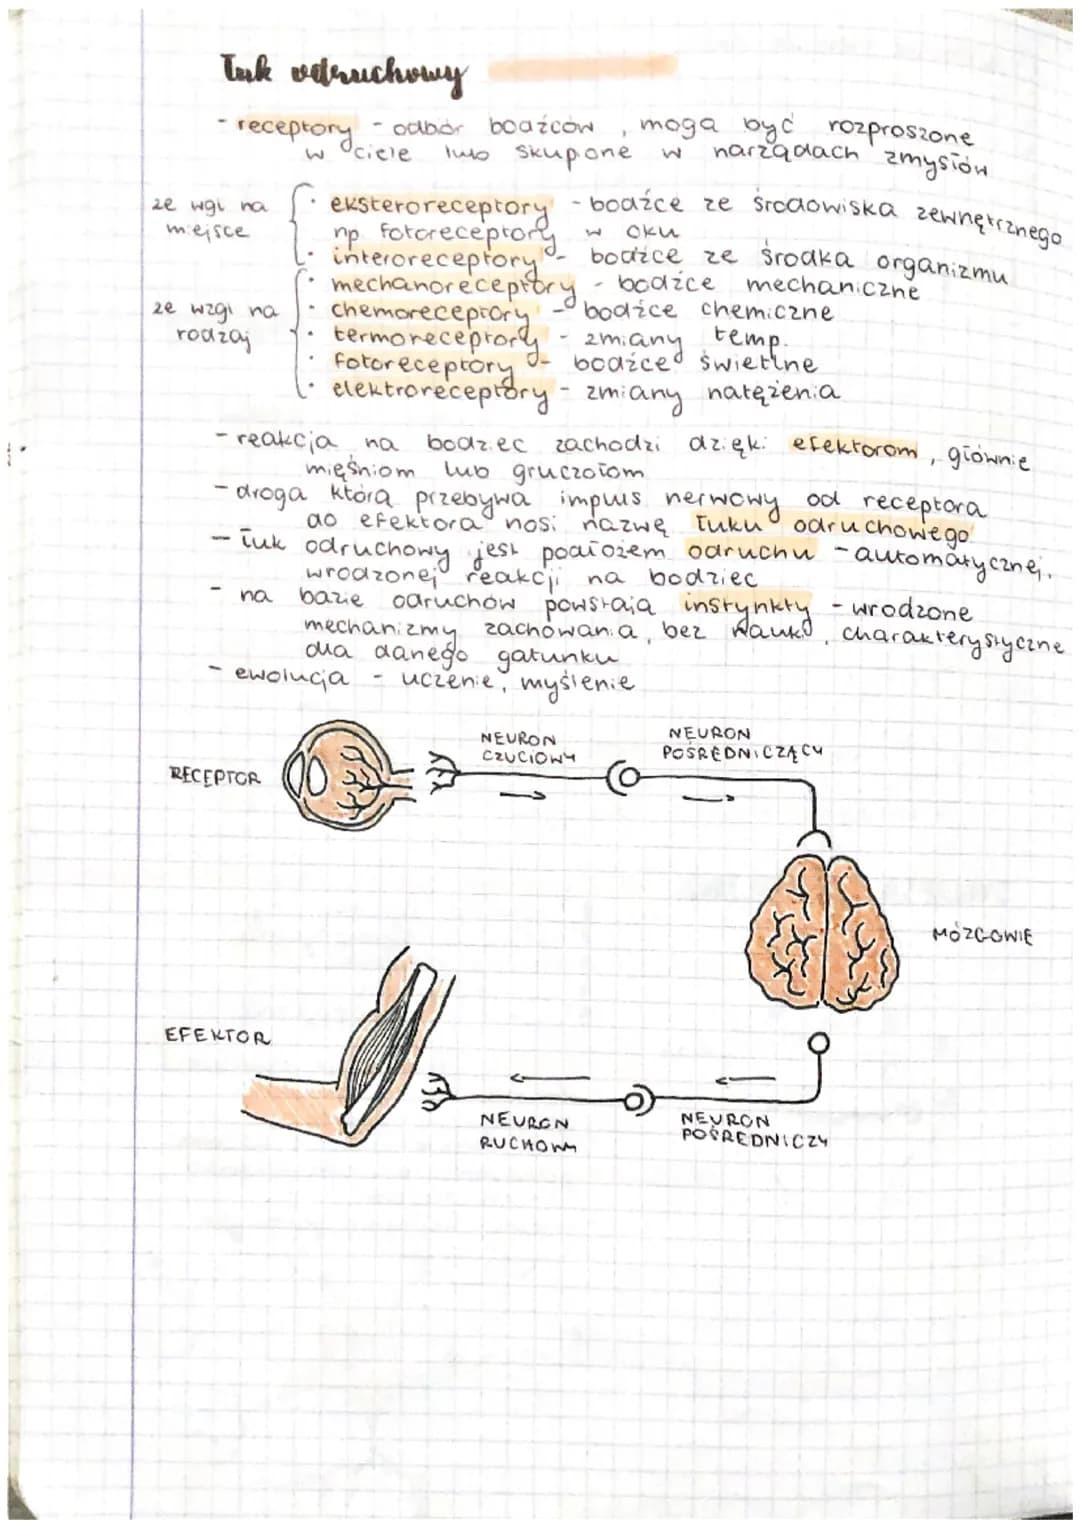 Łuk odruchowy
- receptory - odbiór bodźców, mogą być rozproszone
w ciele lub skupone w narządach zmysłów
ze wgl na miejsce
· eksteroreceptory - bodźce ze środowiska zewnętrznego
np fotoreceptory w oku
· interoreceptory - bodźce ze środka organizmu
ze wzgl na rodzaj
· mechanoreceptory - bodźce mechaniczne
· chemoreceptory - bodźce chemiczne
· termoreceptory - zmiany temp.
· fotoreceptory - bodźce świetlne
· elektroreceptory - zmiany natężenia
- reakcja na bodziec zachodzi dzięki efektorom, głównie
mięśniom lub gruczołom
- droga którą przebywa impuls nerwowy od receptora
do efektora nosi nazwę łuku odruchowego
- łuk odruchowy jest podłożem odruchu - automatycznej,
wrodzonej reakcji na bodziec
- na bazie odruchów powstają instynkty - wrodzone
mechanizmy zachowania, bez nauki, charakterystyczne
dla danego gatunku
- ewolucja - uczenie, myślenie
RECEPTOR
NEURON
CZUCIOWY
NEURON
POŚREDNICZĄCY
MÓZGOWIE
EFEKTOR
NEURON
RUCHOWY
NEURON
POŚREDNICZY